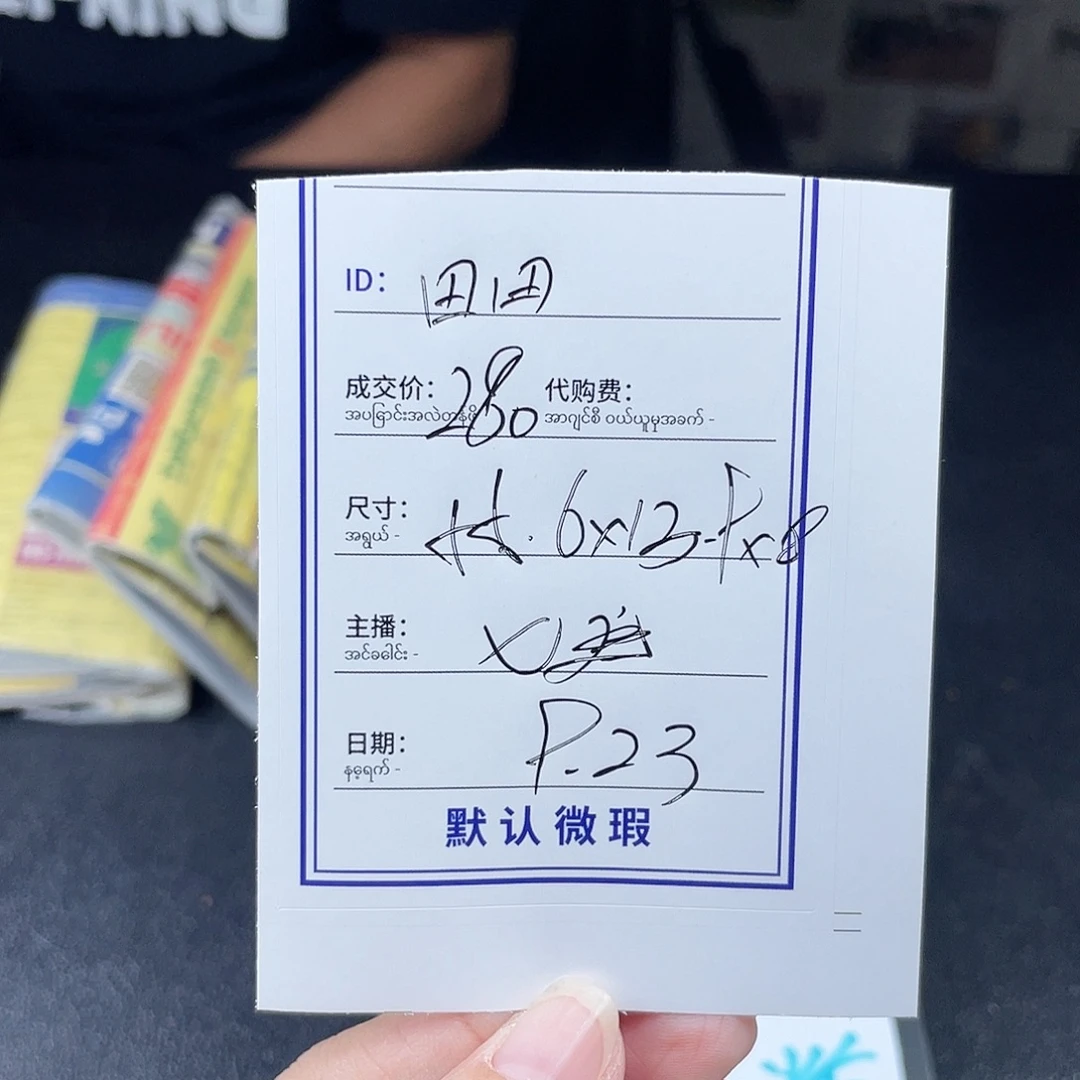 ID: 田田
成交价: 280 代购费:
အပြောင်းအလဲတန်ဖိုး အာဂျင်စီ ဝယ်ယူမှုအခက် -
尺寸: 6x13-
အရွယ် -
主播:
အင်ခေါင်း -
日期: 23
နေ့ရက် -
默认微瑕